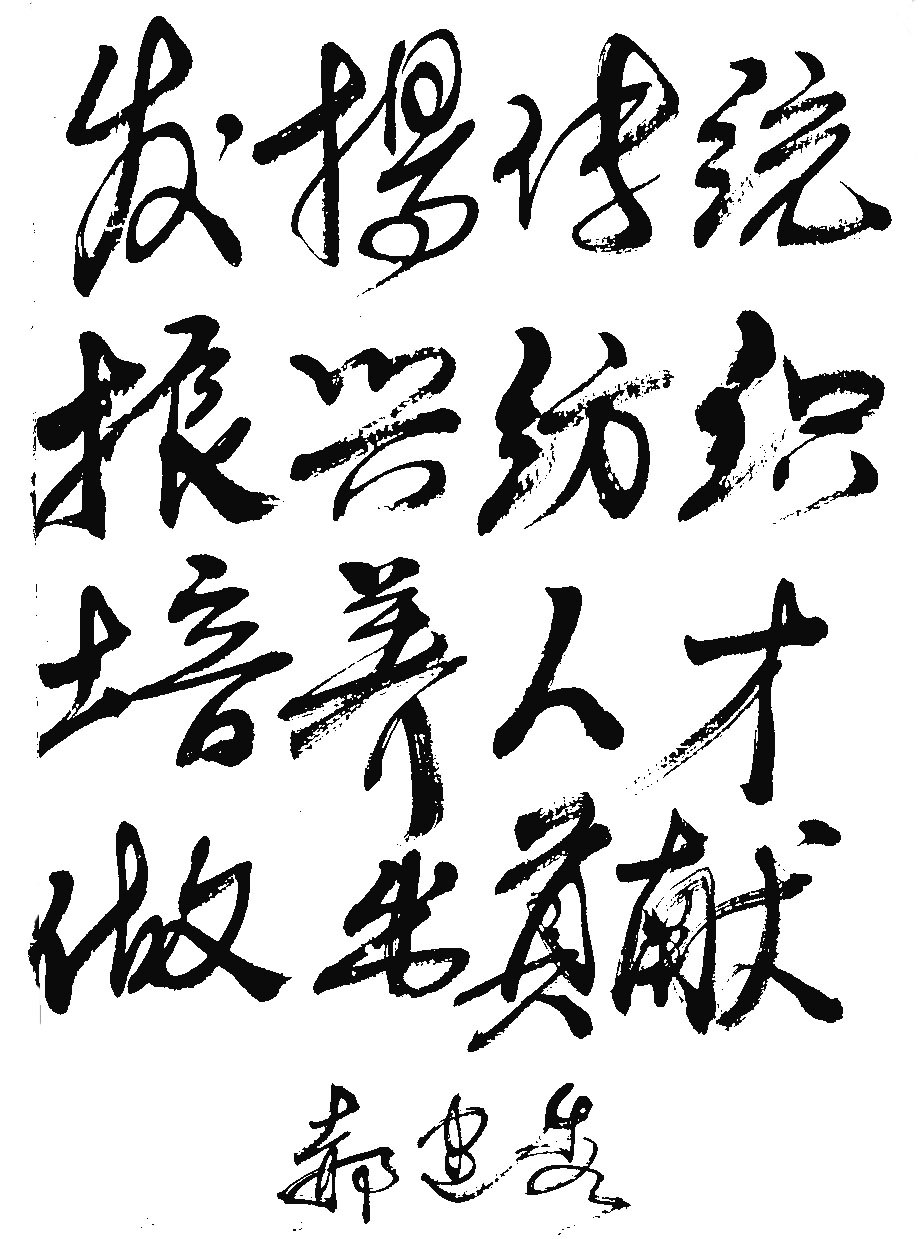 发扬传统
振兴纺织
培养人才
做出贡献
郝建秀